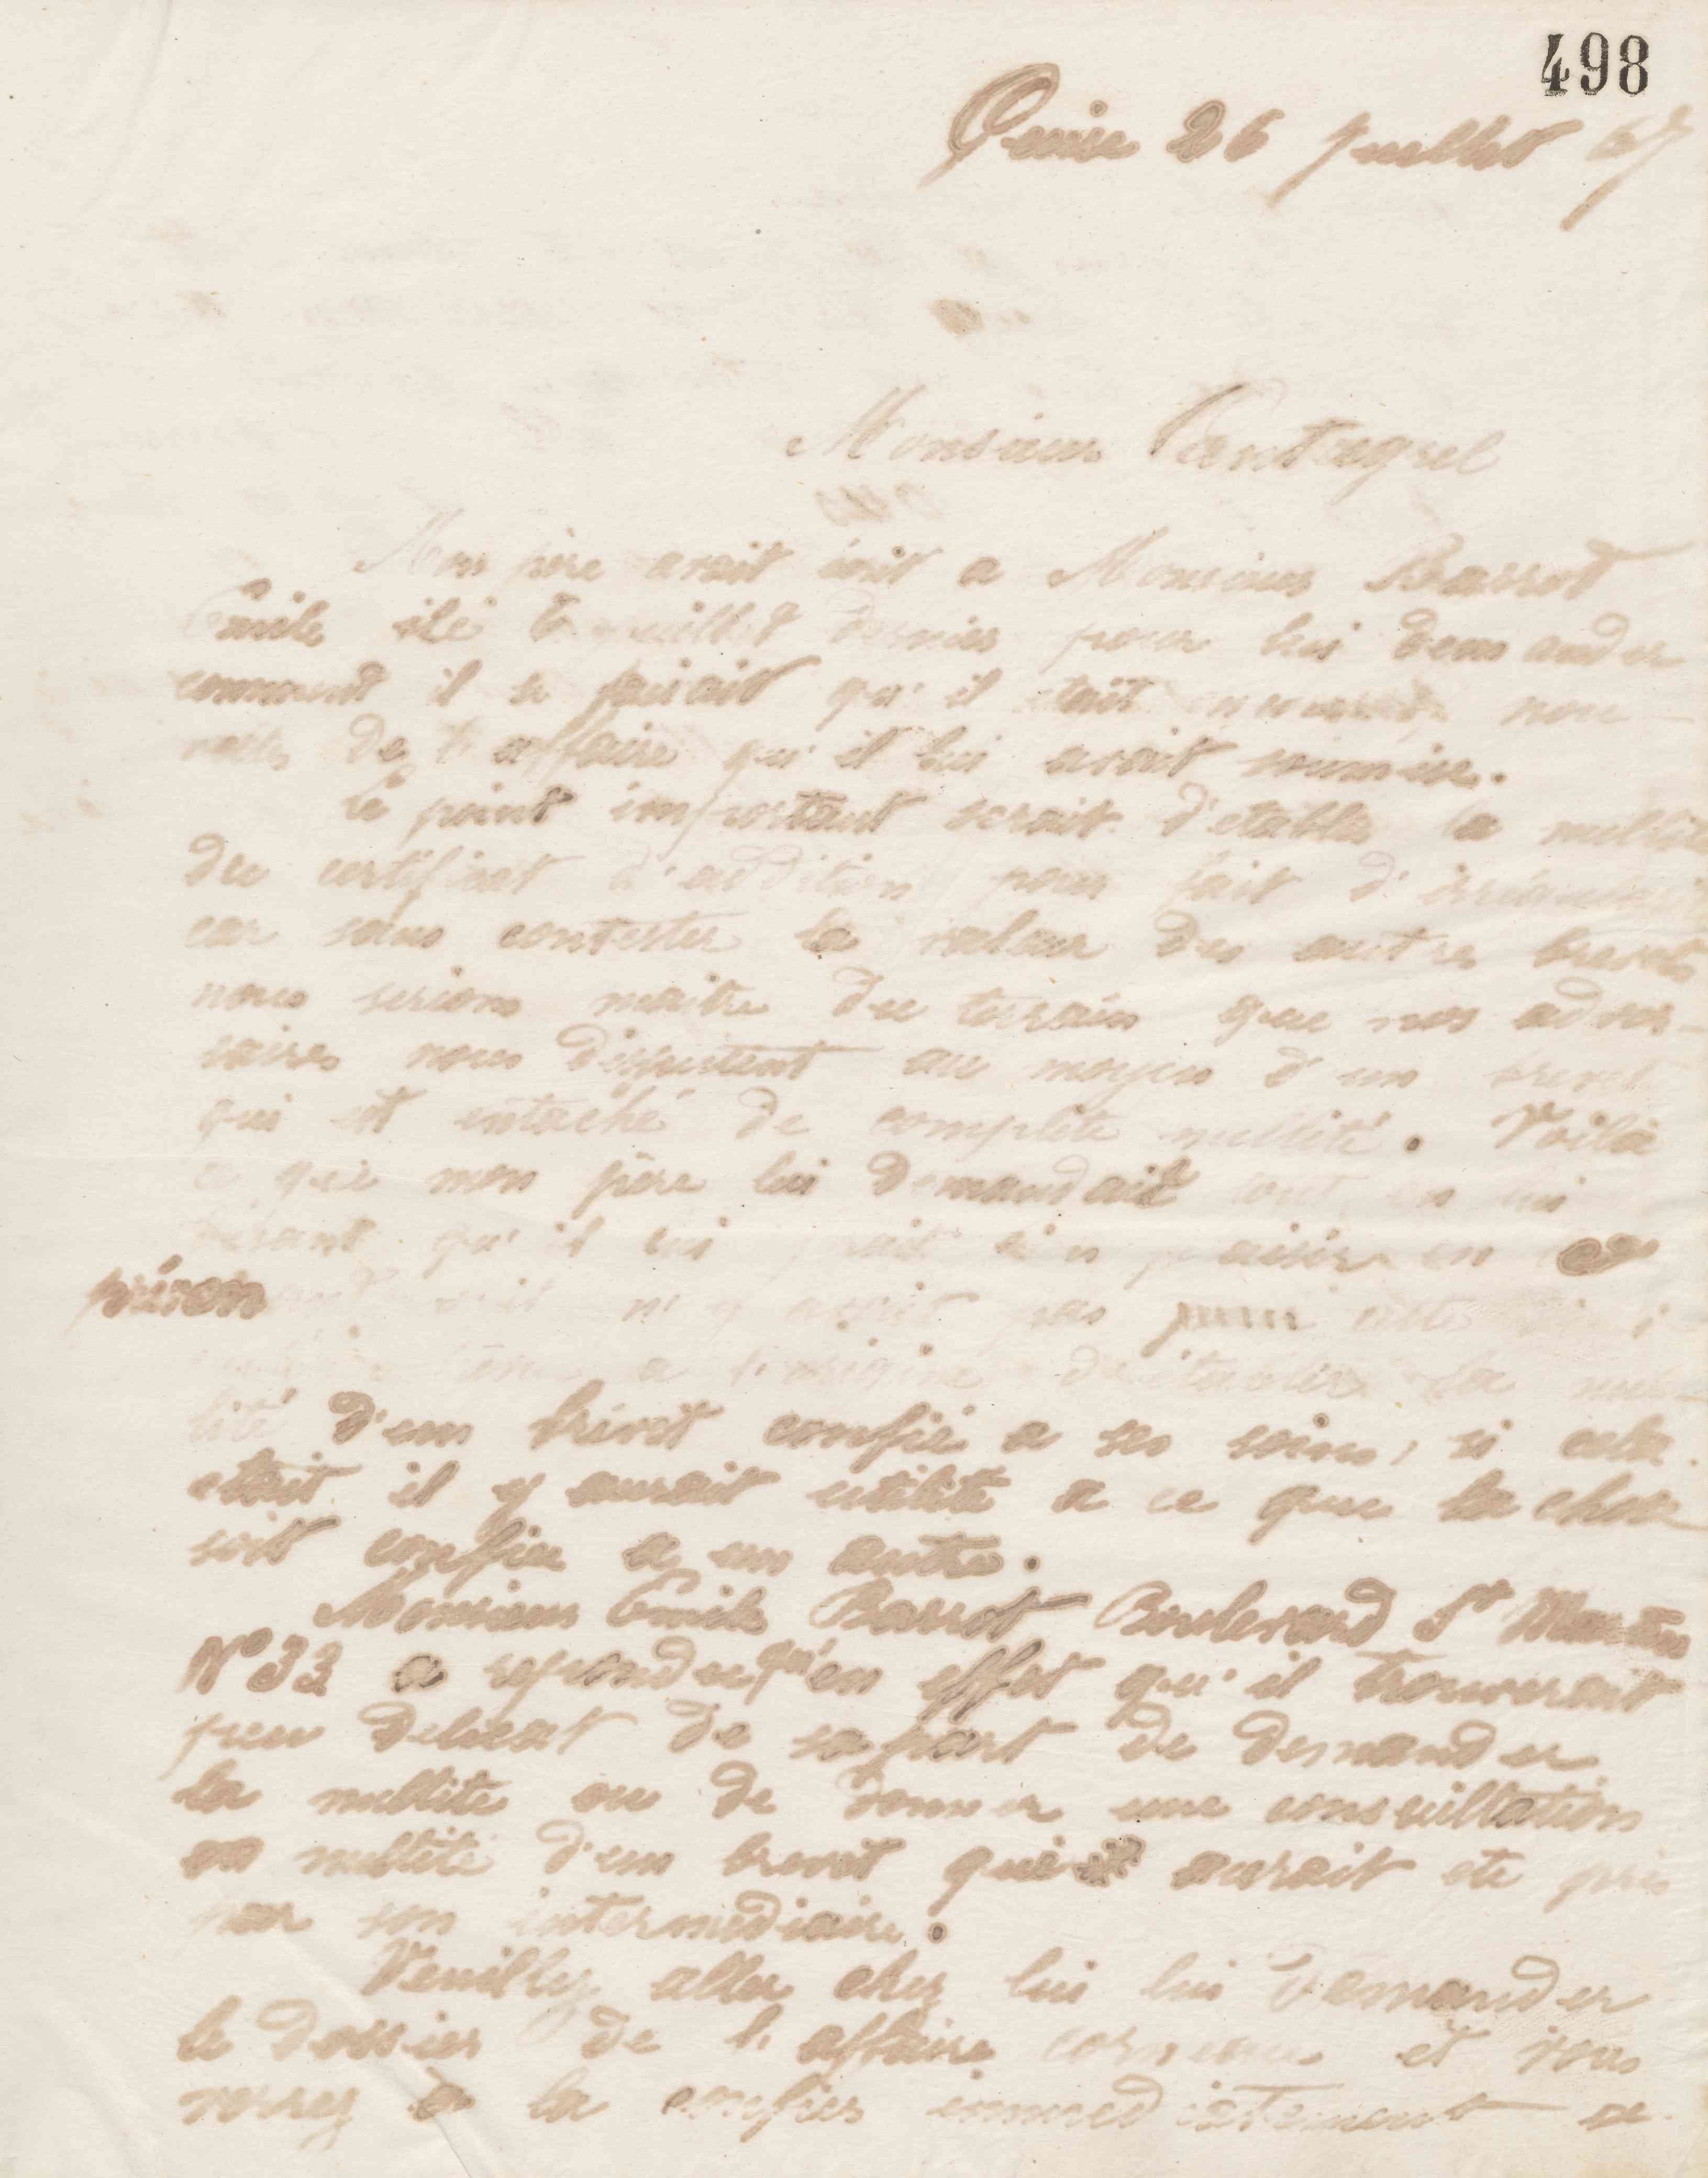 498
Guise 26 Juillet 67
Monsieur Cantagrel
Mon père avait écrit a Monsieur Barrot
Emile le juillet dernier pour lui demander
comment il se faisait qu'il était nou-
velles de l'affaire qu'il lui avait soumise.
Le point important serait d'etablir la nullité
du certificat d'addition pour fait d'
car sans contester la valeur des autres brevets
nous serions maitre du terrain que nos adver-
saires nous disputent au moyen d'un brevet
qui est entaché de complète nullité. Voilà
ce que mon père lui demandait tout en lui
disant qu'il lui en
prévenant n'y avait pas pour
a l'origine d'établir la nul
lité d'un brevet confié a ses soins, si cela
était il y aurait utilité a ce que la chose
soit confiée a un autre.
Monsieur Emile Barrot Boulevard St Martin
N° 33 a repondu qu'en effet qu'il trouverait
peu delicat de sa part de demander
la nullité ou de donner une consultation
en nullité d'un brevet qui aurait ete pris
par son intermédiaire.
Veuillez aller chez lui lui demander
le dossier de l'affaire corneau et vous
verrez à la confier immediatement a